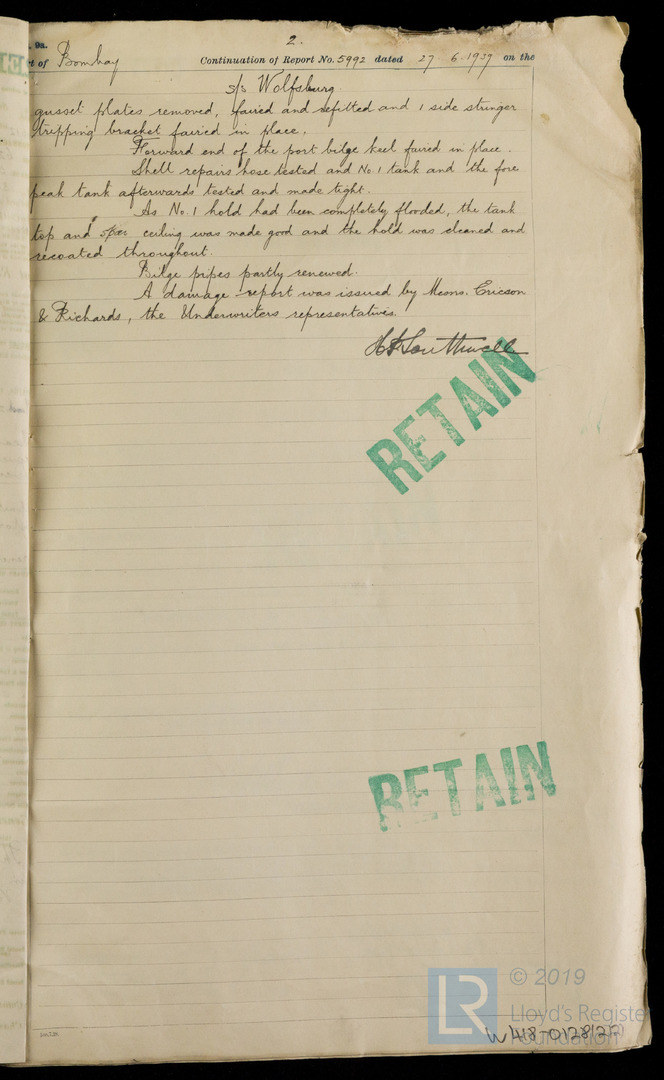 2.
9a.
t of Bombay Continuation of Report No. 5992 dated 27. 6. 1937 on the
s/s Wolfsburg
gusset plates removed, faired and refitted and 1 side stringer
tripping bracket faired in place.
Forward end of the port bilge keel faired in place.
Shell repairs hose tested and No. 1 tank and the fore
peak tank afterwards tested and made tight.
As No. 1 hold had been completely flooded, the tank
top and spar ceiling was made good and the hold was cleaned and
recoated throughout.
Bilge pipes partly renewed.
A damage report was issued by Messrs. Ericson
& Richards, the Underwriters representatives.
H F Southwell
RETAIN
RETAIN
LR
© 2019
Lloyd's Register
Foundation
W418-0128(2/2)